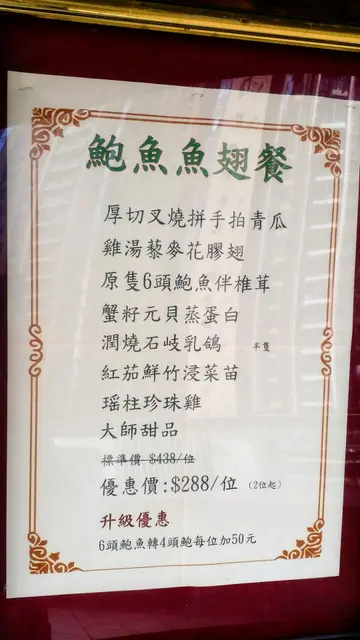 鮑魚魚翅餐
厚切叉燒拼手拍青瓜
雞湯藜麥花膠翅
原隻6頭鮑魚伴椎茸
蟹籽元貝蒸蛋白
潤燒石岐乳鴿 半隻
紅茄鮮竹浸菜苗
瑶柱珍珠雞
大師甜品
標準價 $438/位
優惠價:$288/位 (2位起)
升級優惠
6頭鮑魚轉4頭鮑每位加50元